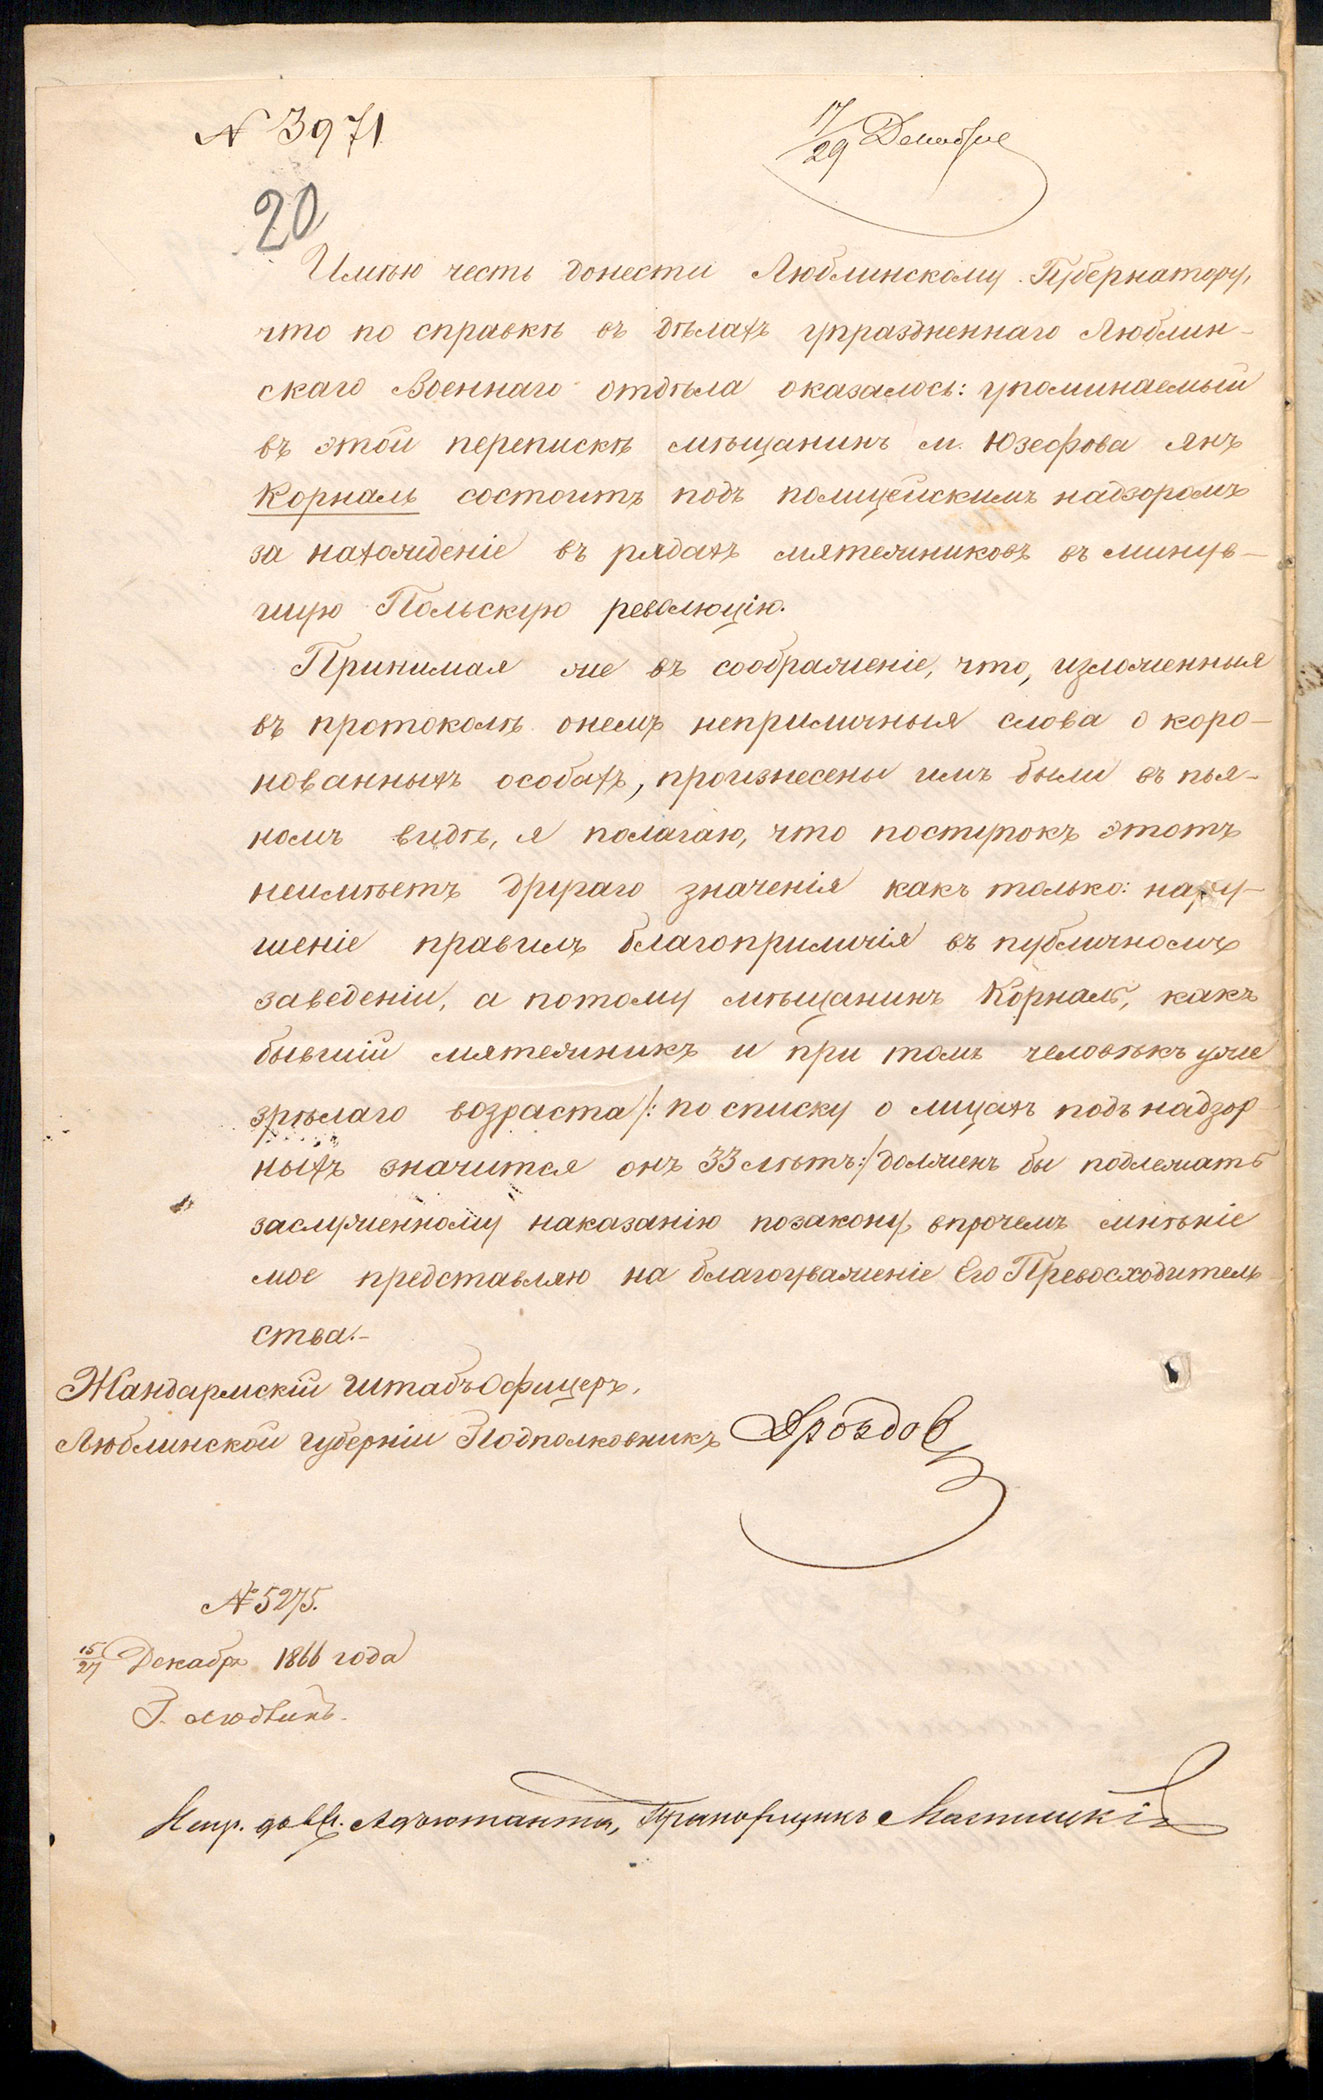 № 3971
17/29 Декабря
20
Имѣю честь донести Люблинскому Губернатору,
что по справкѣ въ дѣлахъ упраздненнаго Люблин-
скаго Военнаго отдѣла оказалось: упоминаемый
въ этой перепискѣ мѣщанинъ м. Юзефова Янъ
Корналь состоитъ подъ полицейскимъ надзоромъ
за нахожденіе въ рядахъ мятежниковъ въ минув-
шую Польскую революцію.
Принимая же въ соображеніе, что, изложенныя
въ протоколѣ онемъ неприличныя слова о коро-
нованныхъ особахъ, произнесены имъ были въ пья-
номъ видѣ, я полагаю, что поступокъ этотъ
неимѣетъ другаго значенія какъ только: нару-
шеніе правилъ благоприличія въ публичномъ
заведеніи, а потому мѣщанинъ Корналь, какъ
бывшій мятежникъ и при томъ человѣкъ уже
зрѣлаго возраста /: по списку о лицахъ подънадзор-
ныхъ значится онъ 33 лѣтъ:/ долженъ бы подлежать
заслуженному наказанію позакону, впрочемъ мнѣніе
мое представляю на благоуваженіе Его Превосходитель-
ства.-
Жандармскій Штабъ Офицеръ,
Люблинской губерніи Подполковникъ Дроздов
№ 5275.
15/27 Декабря 1866 года
Г. Люблинъ.
Испр. дол. Адъютанта, Прапорщикъ